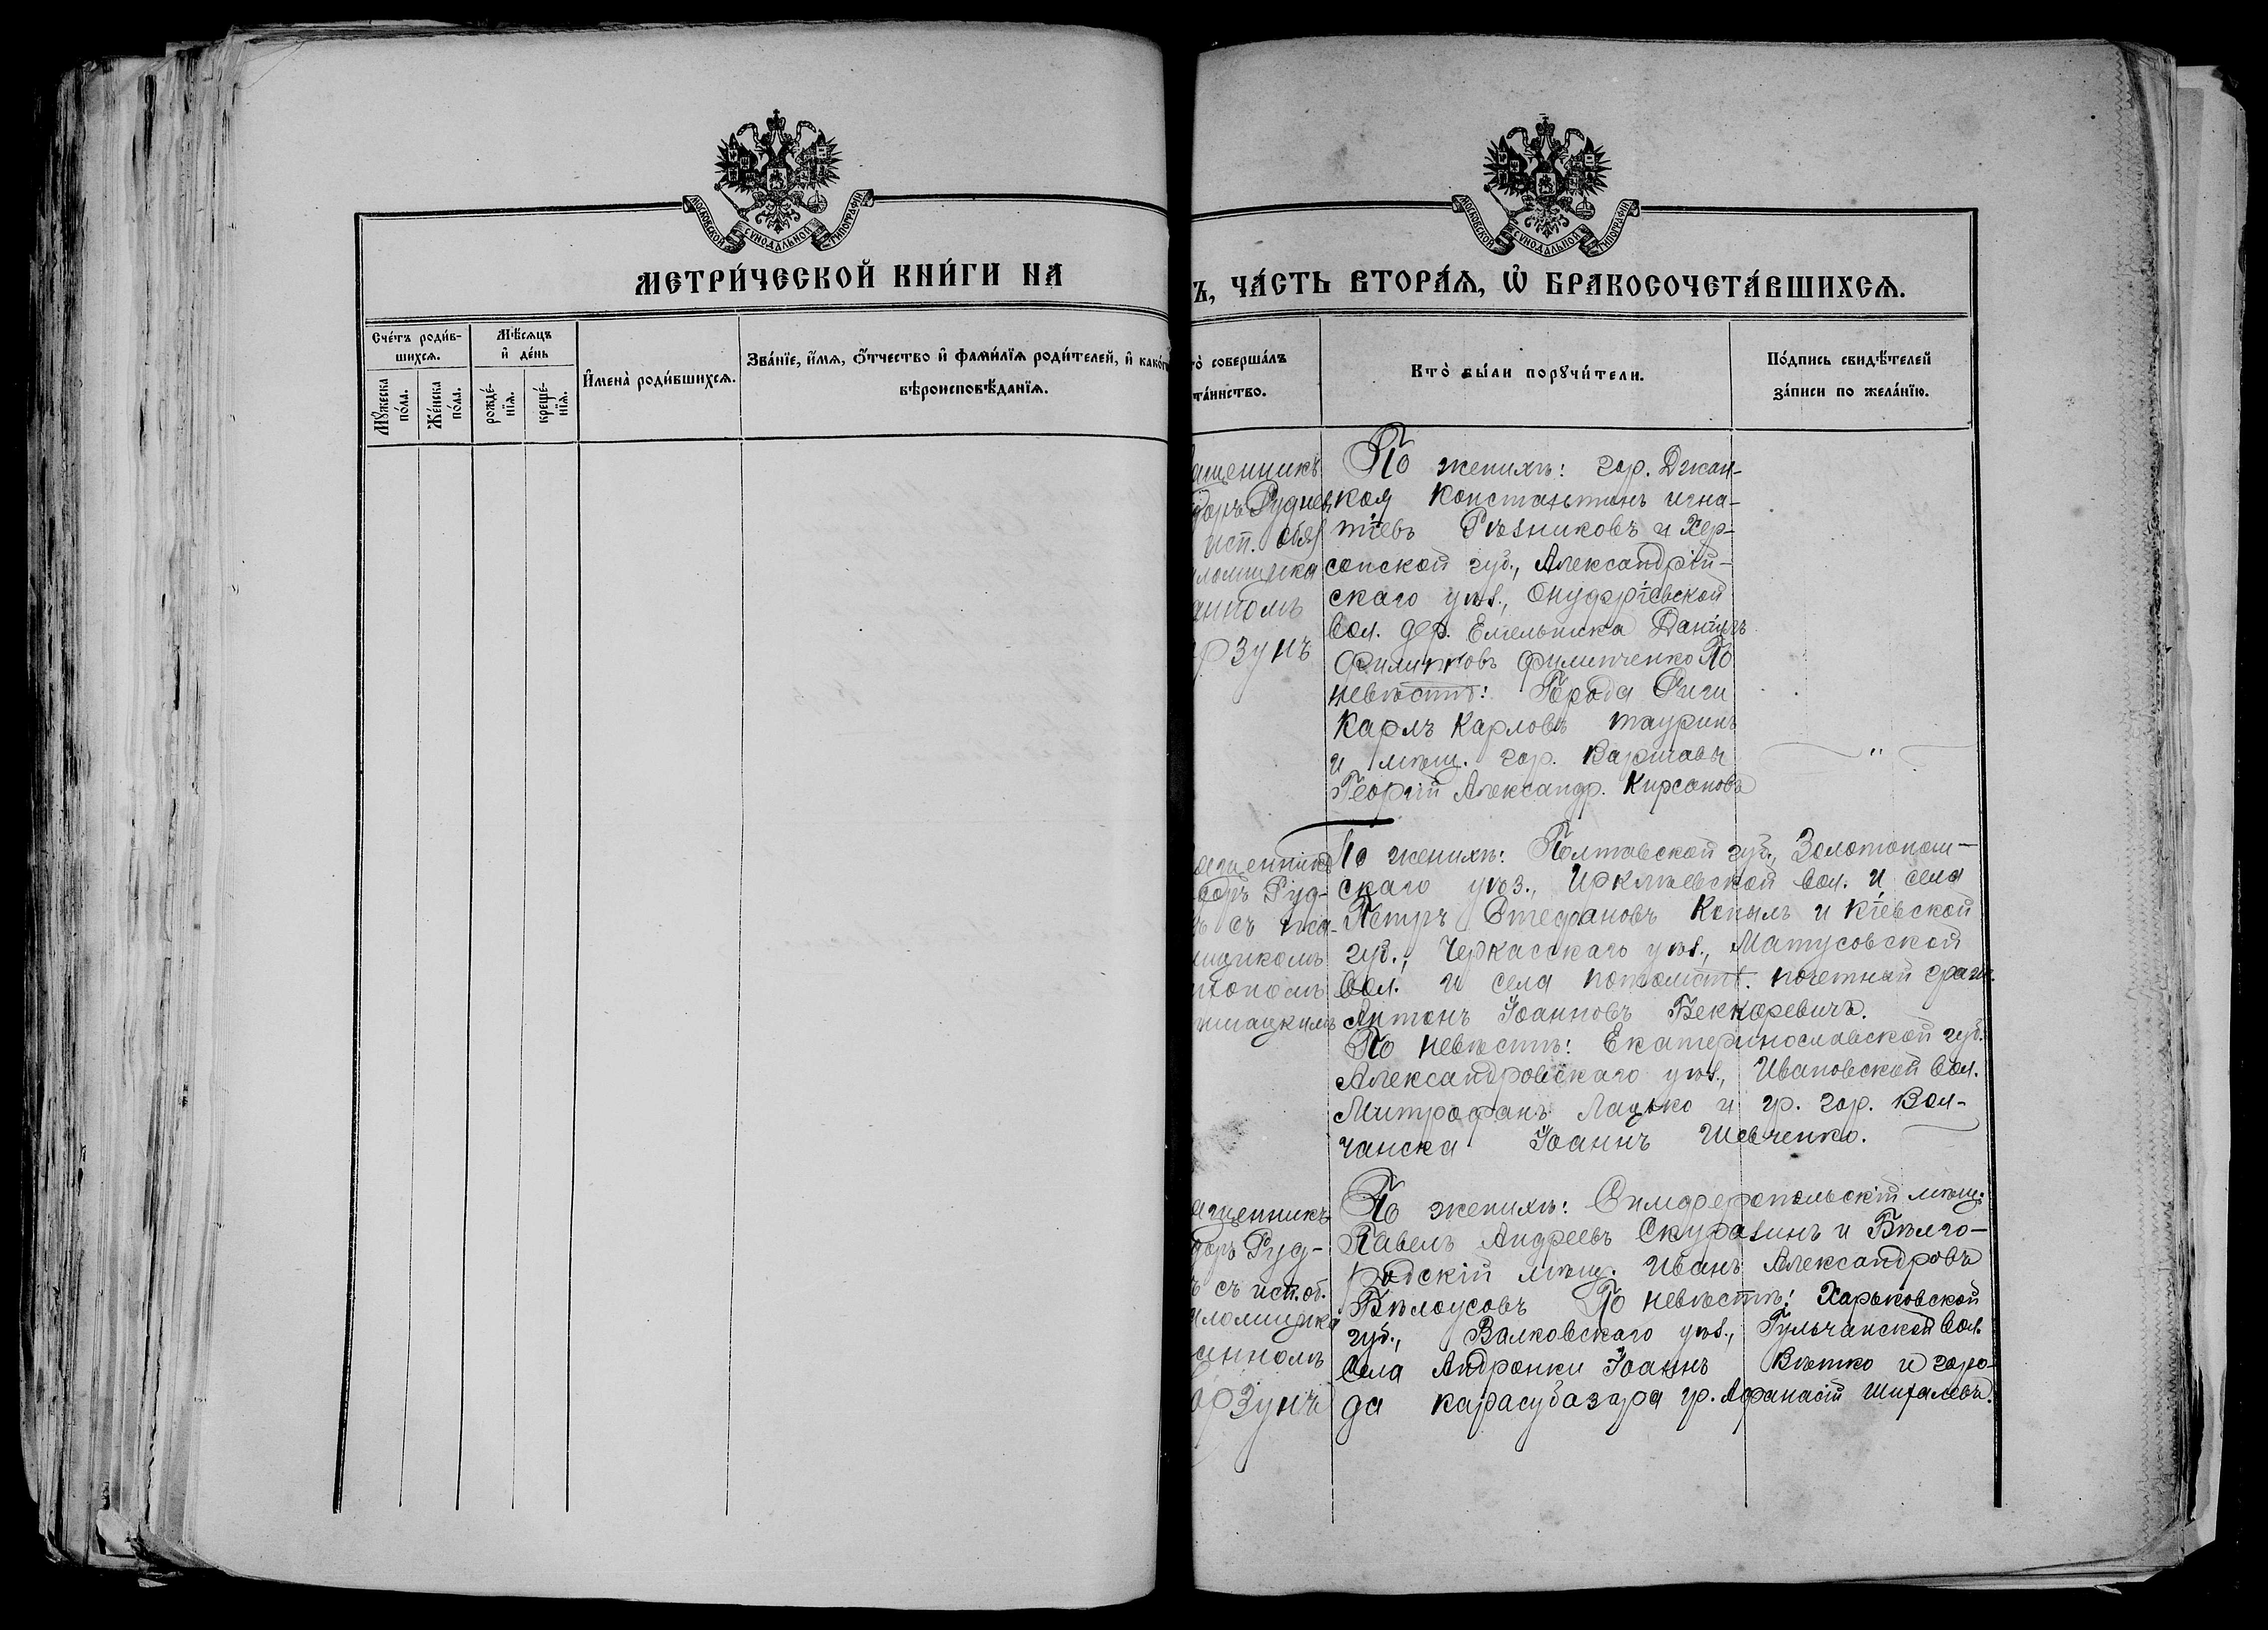 МОСКОВСКОЙ СѴНОДАЛЬНОЙ ТИПОГРАФІИ
МЕТРИ́ЧЕСКОЙ КНИ́ГИ НА
Сче́тъ роди́в-
шихсѧ.
Мѣ́сѧцъ
и҆ де́нь
Мꙋ́жеска
по́ла.
Же́нска
по́ла.
рожде́-
нїѧ.
креще́-
нїѧ.
И҆мена̀ роди́вшихсѧ.
Зва́нїе, и҆́мѧ, ѻ҆́тчество и҆ фами́лїѧ роди́телей, и҆ како́гѡ
вѣроисповѣ́данїѧ.
МОСКОВСКОЙ СѴНОДАЛЬНОЙ ТИПОГРАФІИ
Ъ, ЧА́СТЬ ВТОРА́Ѧ, Ѡ҆ БРАКОСОЧЕТА́ВШИХСѦ.
то̀ соверша́лъ
та́инство.
Кто̀ бы́ли порꙋчи́тели.
По́дпись свидѣ́телей
за́писи по жела́нїю.
ащенникъ
доръ Руднев
исп. обяз
ломщика
анномъ
рзунъ
По женихѣ: гор. Джан-
коя Константинъ Игна-
тіевъ Рѣзниковъ и Хер-
сонской губ., Александрій-
скаго уѣз., Онуфріевской
вол. дер. Емельника Даніилъ
Филипповъ Филипченко По
невѣстѣ: Города Риги
Карлъ Карловъ Тауринъ
и мѣщ. гор. Варшавы
Георгій Александр. Кирсановъ
ащенникъ
доръ Руд-
ъ съ пса-
мщикомъ
По женихѣ: Полтавской губ., Золотонош-
скаго уѣз., Иркліевской вол. и села
Петръ Стефановъ Копылъ и Кіевской
губ., Черкасскаго уѣз., Матусовской
вол. и села потомст. почетный граж.
Антонъ Іоанновъ Беккаревичъ.
По невѣстѣ: Екатеринославской губ.
Александровскаго уѣз., Ивановской вол.
Митрофанъ Лацько и гр. гор. Вол-
чанска Іоаннъ Шевченко.
ащенникъ
доръ Руд-
ъ съ исп. об.
ломщика
анномъ
орзунъ
По женихѣ: Симферопольскій мѣщ.
Павелъ Андреевъ Скуразинъ и Бѣлго-
родскій мѣщ. Иванъ Александровъ
Бѣлоусовъ По невѣстѣ: Харьковской
губ., Валковскаго уѣз., вол.
села Андронки Іоаннъ Вѣтко и горо-
да Карасубазара гр. Афанасій Шихалевъ.